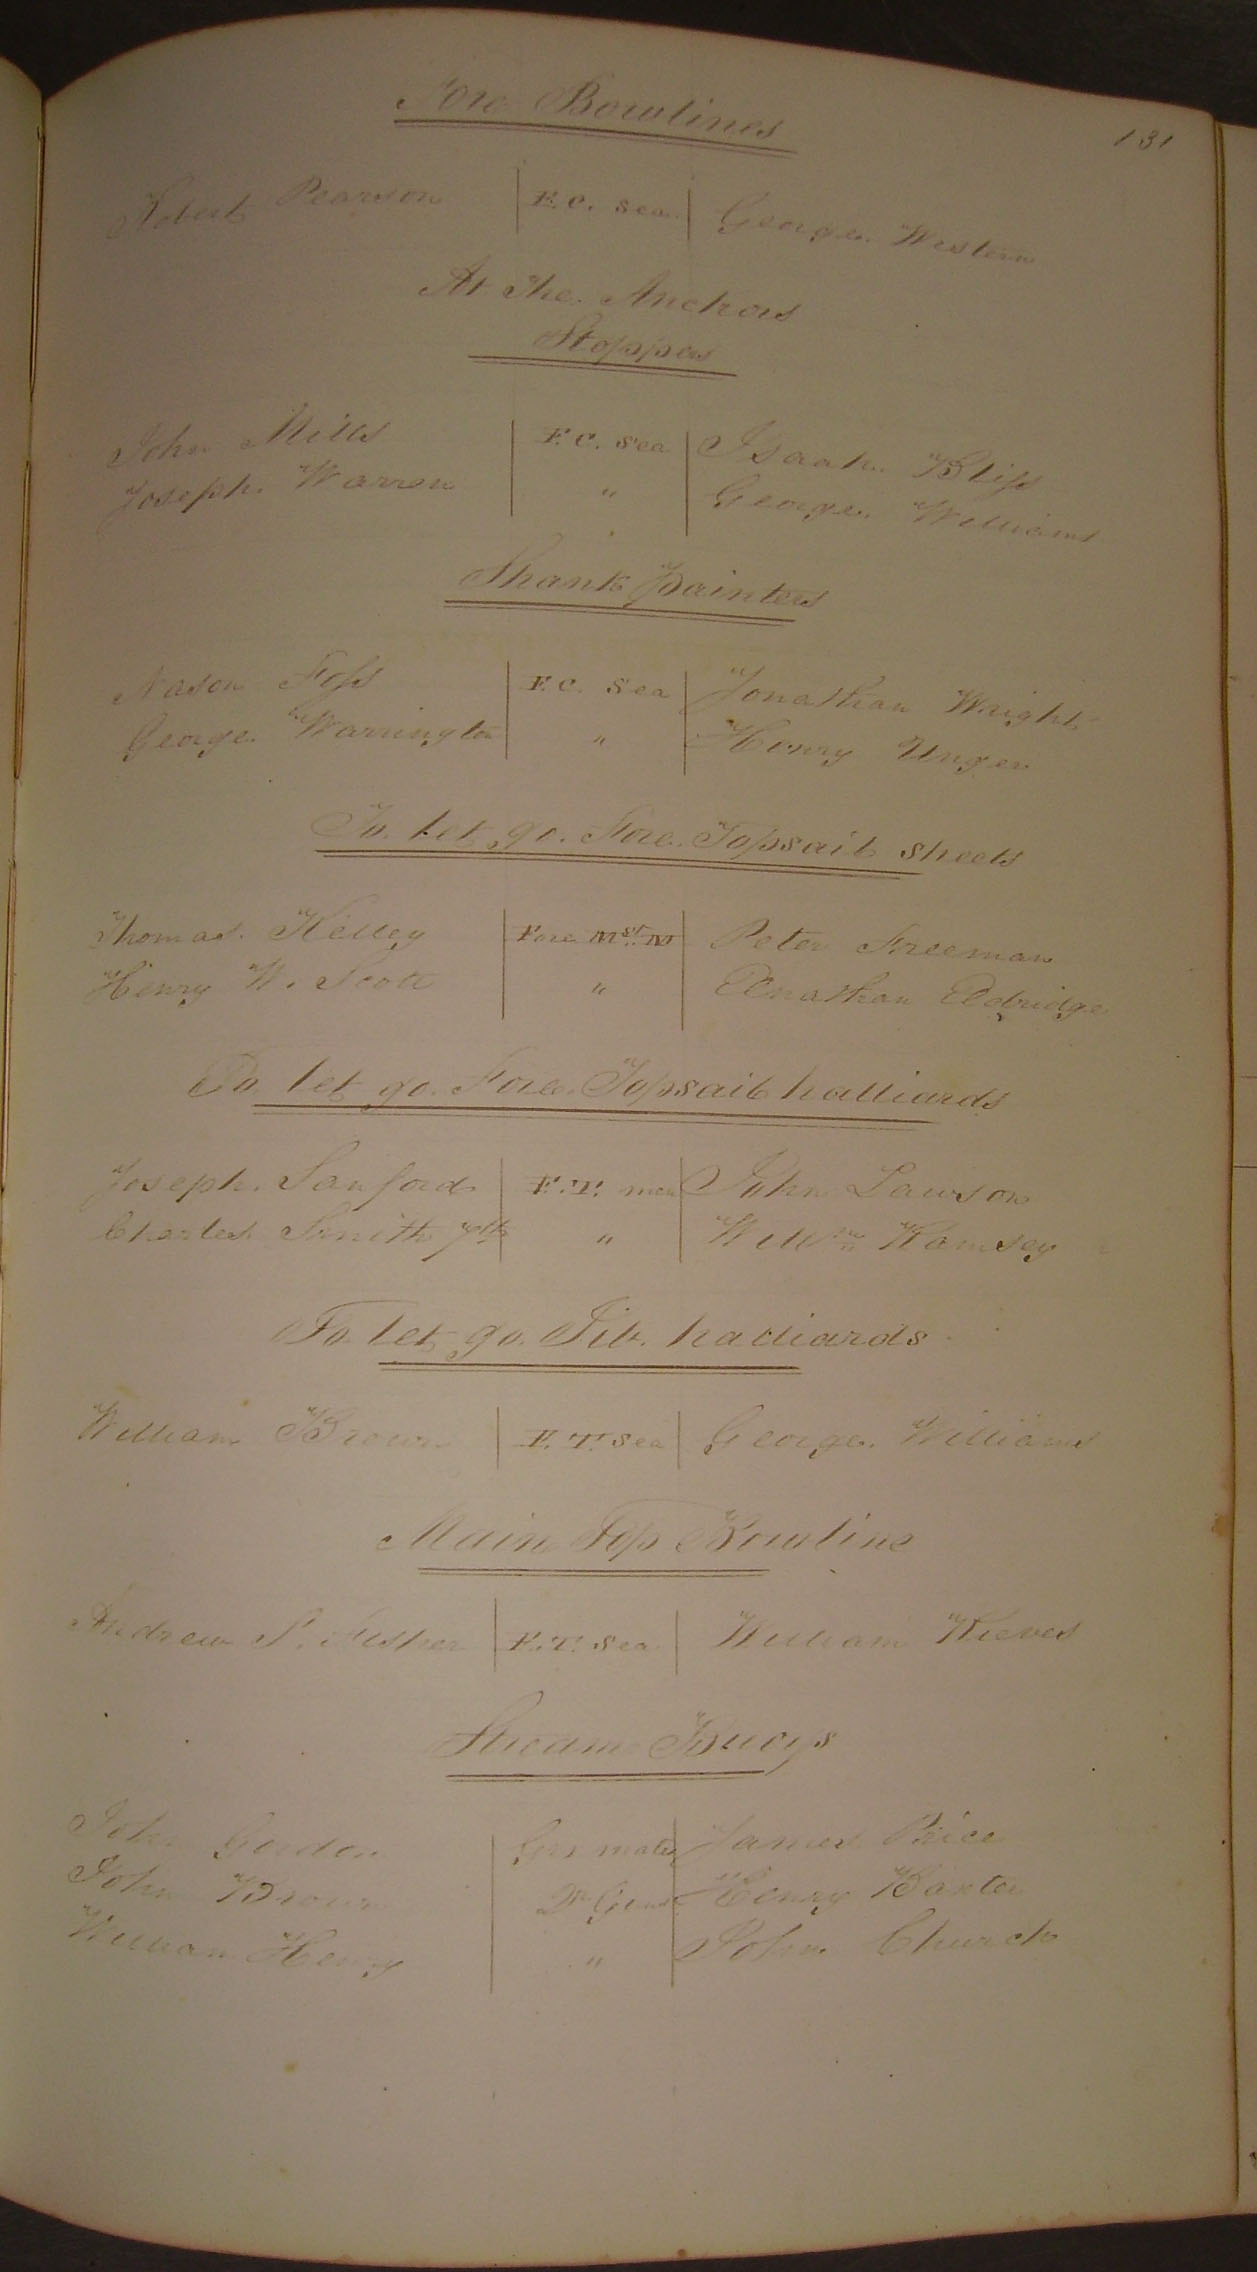 Fore Bowlines
131
Robert Pearson F.C. Sea. George. Western
At The. Anchors
Stoppers
John Mills F.C. Sea Isaah. Bliss
Joseph. Warren " George. Williams
Shank painters
Nason Foss F.C. Sea Jonathan Wright
George. Warrington " Henry Unger
To. let go. Fore. Topsail sheets
Thomas. Kelley Fore Mst. M Peter Freeman
Henry W. Scott " Elnathan Eldridge
To. let go. Fore. Topsail halliards
Joseph. Sanford F.T. men John Lawson
Charles Smith 7th " Willm Ramsey
To. let go. Jib. halliards
William Brown F.T. Sea George. Williams
Main Top Bowline
Andrew S. Fisher F.T. Sea William Rieves
Stream Buoys
John Gordon Grs mates James Price
John Brown Qr Guns Henry Baxter
William Henry " John. Church